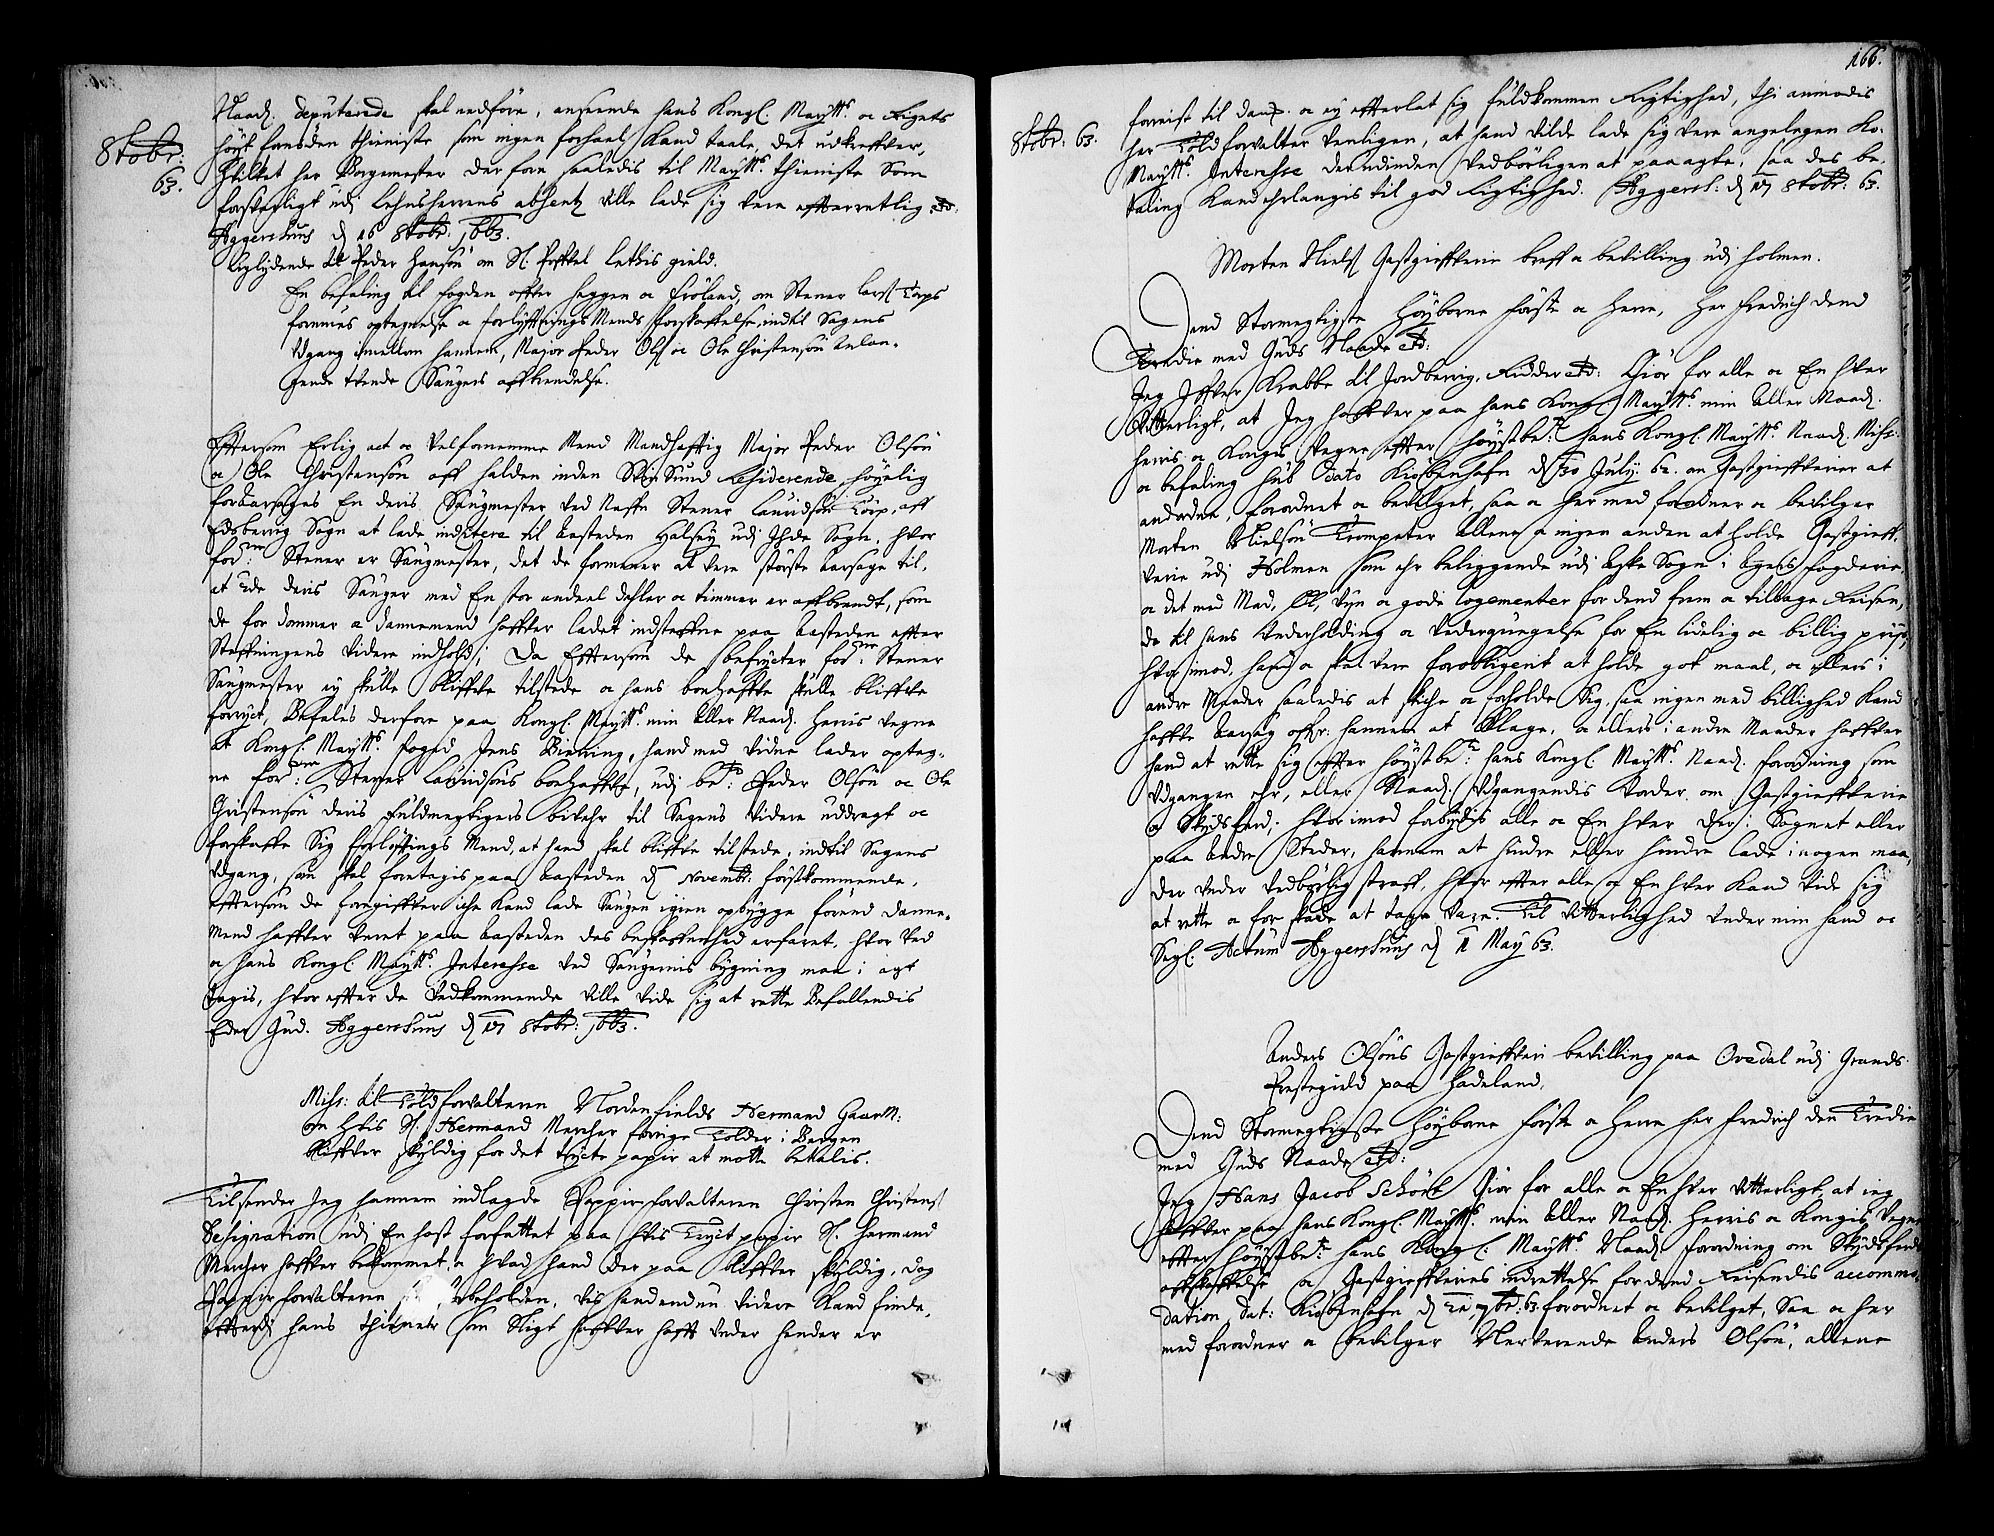 8tobr:
63.
Naad. deputerede skal nedföre, anseende hans Kongl. Maÿtts. oc Rigets
höyt fornöden thienniste som ingen forhaal Kand taale, det udkreffver,
Hvilket her Borgemester derfore saaledis til Maÿtts. thienniste som
forsvarligt udj Lehnsherrens absentz ville lade sig vere efterretlig etc:
Aggershuus d 16 8tobr: 1663.
Liglydende til Peder Hansön om Sl. Lethis gield.
En befaling til fogden offver Heggen oc Fröland, om Stener Larss Torps
formues optegnelse oc forlofftnings Mends forskaffelse, indtil Sagens
Udgang imellom hannem, Major Peder Olss oc Ole Christensön Anlan-
gende tvende Saugers affbrendelse.
Effterson Erlig act oc Velfornemme Mend Mandhafftig Major Peder Olsön
oc Ole Christensön aff Halden inden Svinesund Residerende, höyelig
foraarsages En deris Saugmester ved Naffn Stener Lauridsön Torp, aff
Edsberrig Sogn at lade inditere til aasteden Halsey udj Ihde Sogn, hvor
forne: Stener er Saugmester, det de formener at vere störste aarsage til,
at Tvde deris Sauger med En stor andeel dehler oc timmer er affbrendt, som
de for dommer oc dannemend haffver ladet indsteffne paa aasteden effter
Steffningens videre indhold; Da Effterson de befrycter forne: Stener
Saugmester ej skulle bliffve tilstede oc hans boehaffve skulle bliffve
forryct, Befales derfore paa Kongl. Maÿtts. min Aller Naad. Herris vegne
at Kongl. Maÿtts. foged Jens Bierning, hand med vidne lader opteg-
ne forne: Stener Lauridsöns boehaffve, udj bete: Peder Olsön oc Ole
Christensön deris fuldmegtigers bivehr til Sagens videre uddragt oc
forskaffe Sig forlofftings Mend, at hand skal bliffve tilstede, indtil Sagens
udgang, som skal foretagis paa aasteden d Novembr: förstkommende,
effterson de foregiffver iche Kand lade Saugen igien opbygge förend danne-
Mend haffver veret paa aasteden des beskaffenhed erfaret, hvor ved
oc hans Kongl. Maÿtts. Interesse ved Saugernis bygning maa i agt
tagis, hvor effter de Vedkommende ville vide sig at rette Befallendis
Eder Gud. Aggershuus d 17 8tobr: 1663.
Miss: til Toldforvalteren Nordenfields Hermand Gaarm:
om hvis Sl. Hermand Mercher forrige Tolder i Bergen
bliffver skyldig for det trycte papir at motte betalis.
Tilsender Jeg hannem indlagde Pappir forvalteren Christen Christenss
Designation udj En hast forfattet paa hvis Tryct papir Sl. Hermand
Mercher haffver bekommet, oc hvad hand der paa bliffver skyldig, dog
Pappir forvalteren forbeholden, des hand endnu videre Kand finde,
efftersom hans thienner som Sligt haffver hafft under hender er
166.
8tobr: 63.
forreist til Danm. oc ey efterlat sig fuldkommen Rigtighed, thi anmodis
her Toldforvalter venligen, at hand vilde lade sig vere angelegen Ko.
Maÿtts. Interesse derudinden vedbörligen at paaagte, saa des be-
taling Kand erlangis til god Rigtighed. Aggersh: d 17 8tobr: 63.
Morten Nielss Gastgieffverie breff oc bevilling udj Holmen.
Dend Stormegtigste Höyborne förste oc Herre, Her Fredrich dend
Tredie med Guds Naade etc:
Jeg Iffver Krabbe til Jordberrig, Ridder etc: Giör for alle oc En hver
vitterligt, at Jeg haffver paa hans Kongl. Maÿtts. min Aller Naad.
Herris oc Kongis vegne effter höystbete: hans Kongl. Maÿtts. Naad. Miss:
oc befaling sub dato Kiöbenhafn d 30 July 62. om Gastgieffverier at
anordne, forordnet oc bevilget, saa oc her med forordner oc bevilger
Morten Nielsön Trompeter Allene oc ingen anden at holde Gastgieff-
verie udj Holmen som ehr beliggende udj Aske Sogn i Agers fogderie,
oc det med Mad, Öl, Vyn oc gode logementer for dend frem oc tilbage Reisen-
de til hans Underholding oc vedergvegelse for En lidelig oc billig priis,
hvor imod, hand oc skal vere forobligerit at holde got maal, oc ellers i
andre Maader saaledis at skiche oc forholde Sig, saa ingen med billighed Kand
haffve aarsag offver hannem at Klage, oc ellers i andre Maader haffver
hand at rette sig effter höystbete: hans Kongl. Maÿtts. Naad. forordning som
udgangen ehr, eller Naad. udgangendis vorder om Gastgieffverie
oc Skydsferd; hvor imod forbydis alle oc En hver der i Sognet eller
paa andre Steder, hannem at hindre eller hindre lade i nogen maa-
der under vedbörlig straff, hvor effter alle oc En hver Kand vide sig
at rette oc for skade at tage vare. Til vitterlighed under min hand oc
Segl. Actum Aggershuus d 11 May 63.
Anders Olsöns Gastgieffveri bevilling paa Ovedal udj Grands
Prestegield paa Hadeland.
Dend Stormegtigste Höyborne förste oc Herre her Fredrich den Tredie
med Guds Naade etc:
Jeg Hans Jacob Schört Giör for alle oc En hver vitterligt, at ieg
haffver paa hans Kongl. Maÿtts. min Aller Naad. Herris oc Kongis vegne
effter höystbete: hans Kongl. Maÿtts. Naad. forordning om Skydsferds
affskaffelse oc Gastgieffveries indrettelse for dend Reisendis accommo-
dation, dat: Kiöbenhafn d 7br: 63 forordnet oc bevilget, Saa oc her
med forordner oc bevilger Nerverende Anders Olsön, allene